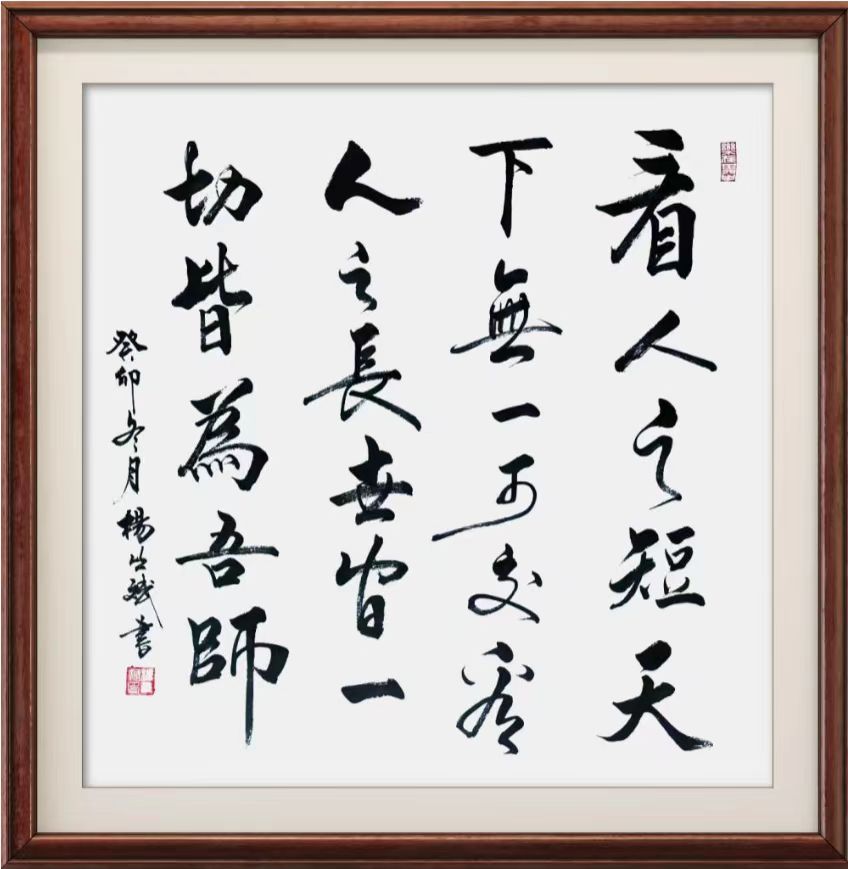 看人之短天
下無一可交看
人之長世間一
切皆為吾師
癸卯冬月楊生斌書